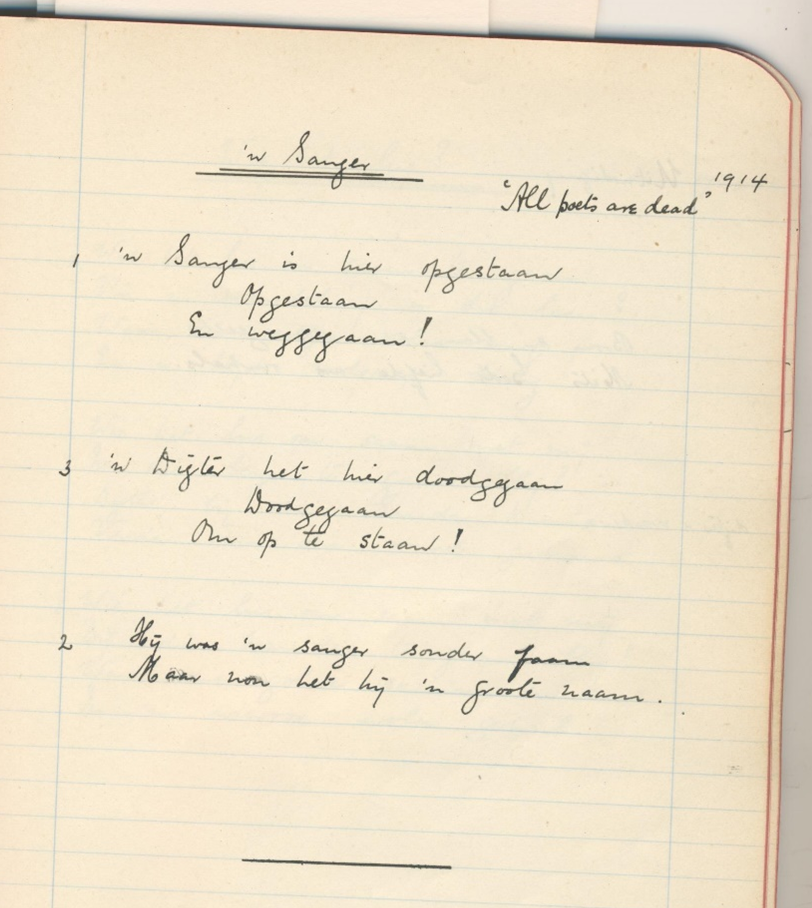 'n Sanger
1914
"All poets are dead"
1 'n Sanger is hier opgestaan
Opgestaan
En weggegaan!
3 'n Digter het hier doodgegaan
Doodgegaan
Om op te staan!
2 Hy was 'n sanger sonder faam
Maar nou het hy 'n groote naam.